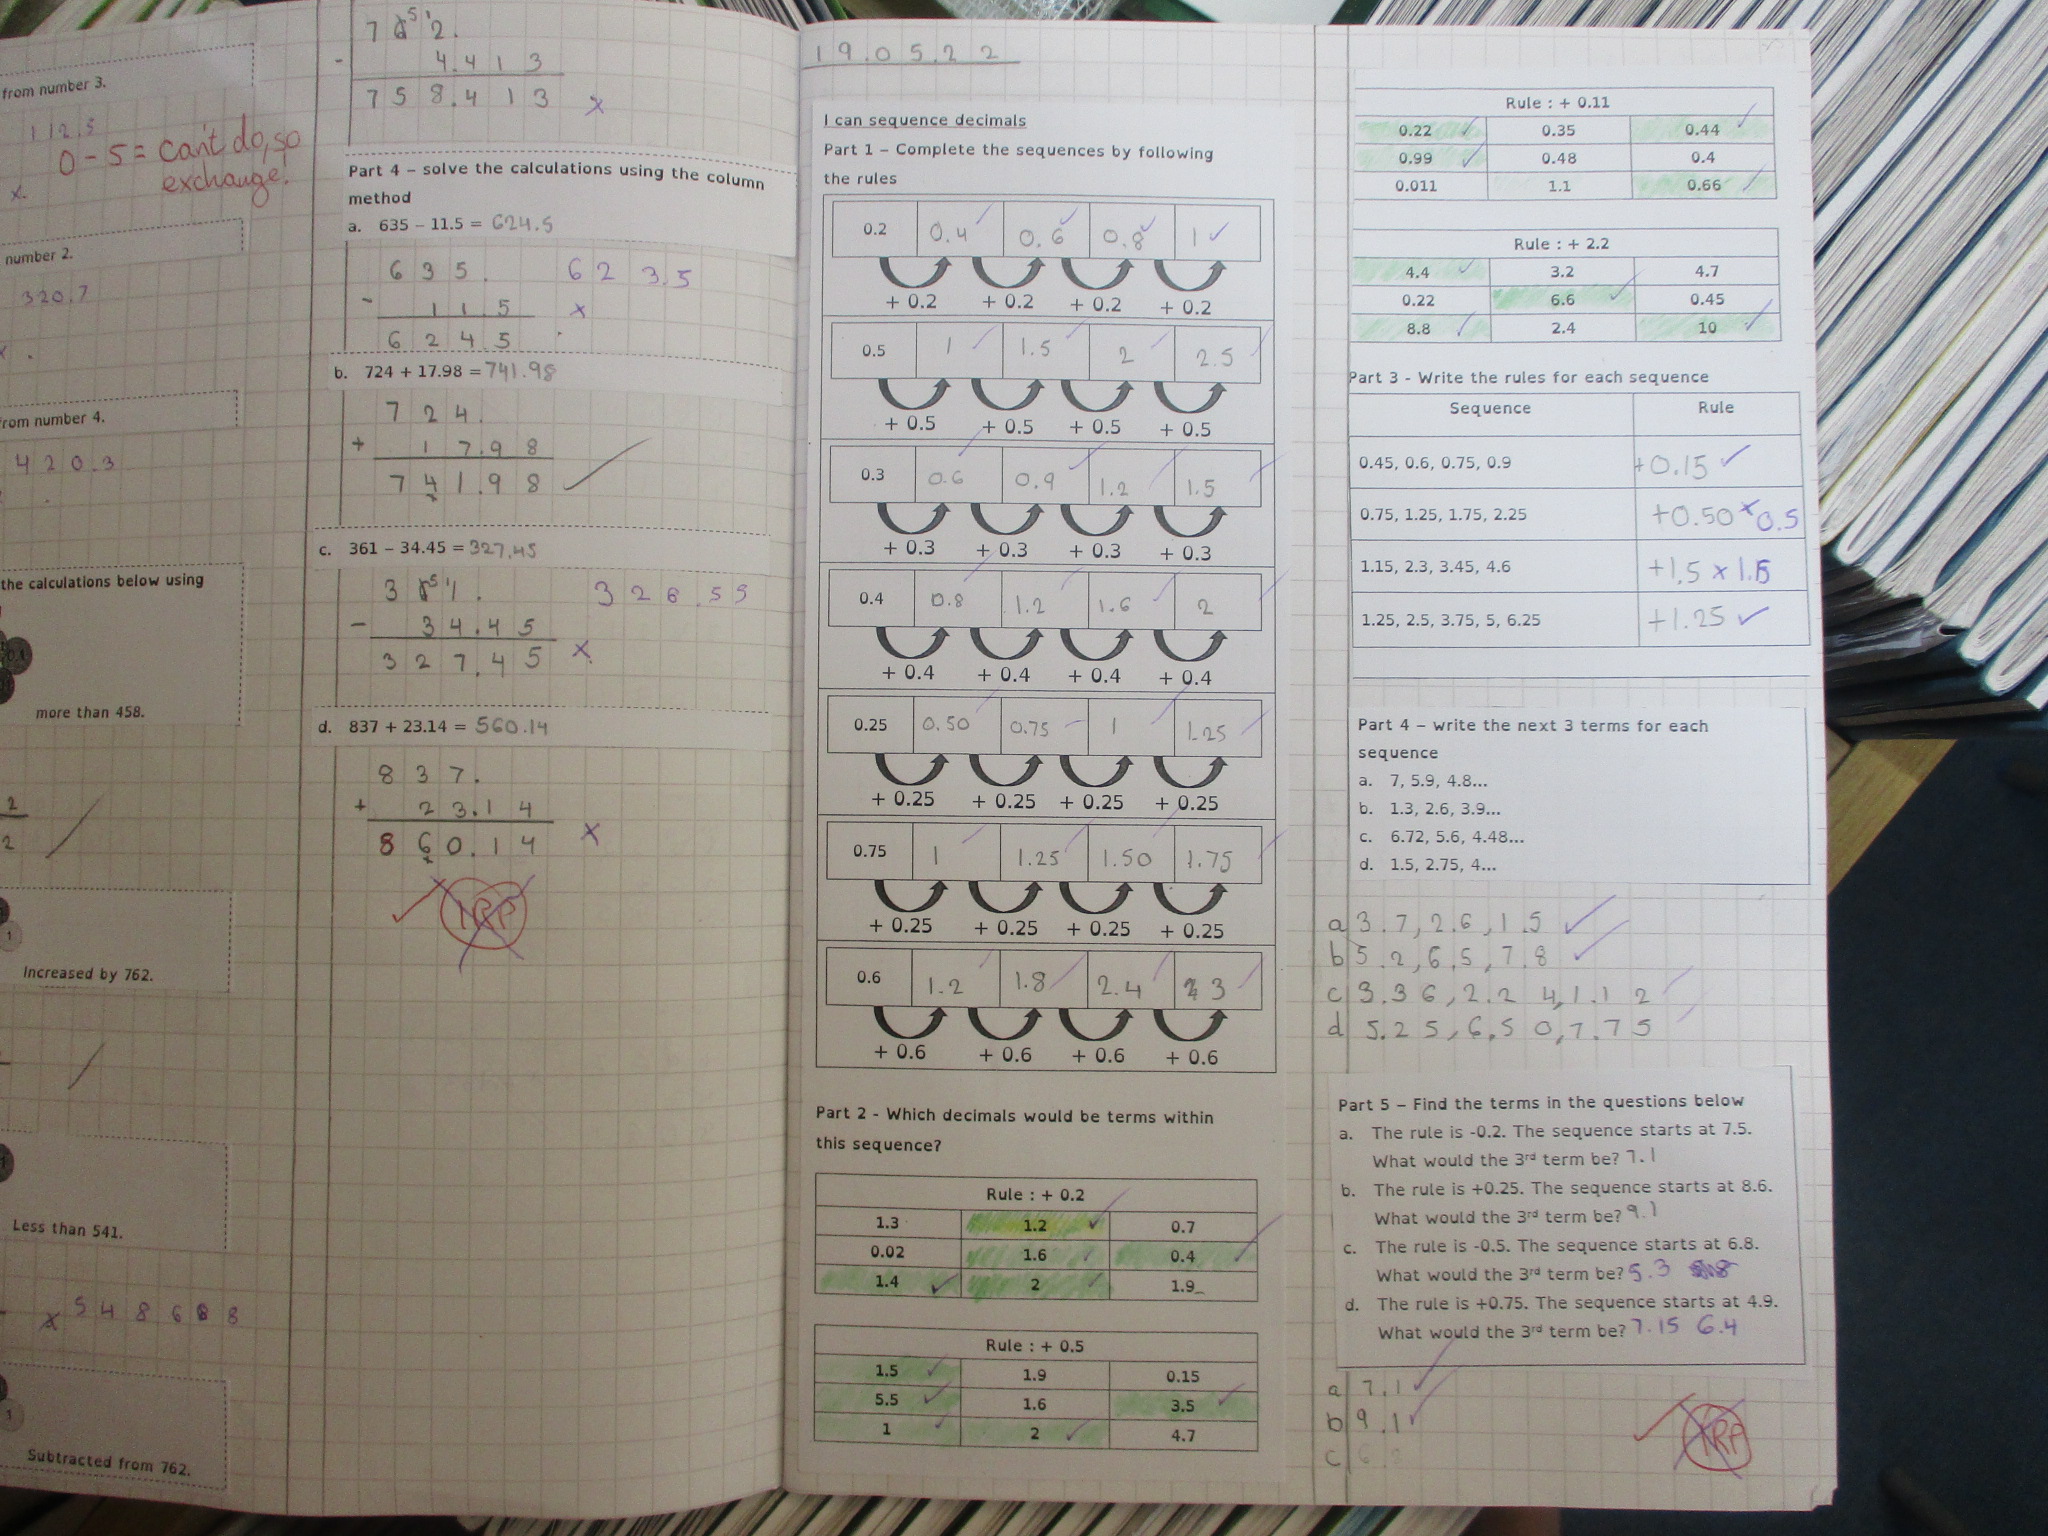 from number 3.
1 1 2 . 5
0 - 5 = can't do, so
exchange!
x.
number 2.
3 2 0 . 7
from number 4.
4 2 0 . 3
the calculations below using
0.1
more than 458.
2
2
1
Increased by 762.
Less than 541.
x 5 4 8 6 8 8
1
Subtracted from 762.
5 1
7 6 2 .
- 4 . 4 1 3
7 5 8 . 4 1 3 x
Part 4 – solve the calculations using the column
method
a. 635 – 11.5 = 624.5
6 3 5 . 6 2 3 . 5
- 1 1 . 5 x
6 2 4 . 5
b. 724 + 17.98 = 741.98
7 2 4 .
+ 1 7 . 9 8
7 4 1 . 9 8 ✓
c. 361 – 34.45 = 327.45
3 6 5 1 1 . 3 2 6 . 5 5
- 3 4 . 4 5
3 2 7 . 4 5 x
d. 837 + 23.14 = 560.14
8 3 7 .
+ 2 3 . 1 4
8 6 0 . 1 4 x
✓ TRP
19.05.22
I can sequence decimals
Part 1 – Complete the sequences by following
the rules
0.2 0.4 0.6 0.8 1
+ 0.2 + 0.2 + 0.2 + 0.2
0.5 1 1.5 2 2.5
+ 0.5 + 0.5 + 0.5 + 0.5
0.3 0.6 0.9 1.2 1.5
+ 0.3 + 0.3 + 0.3 + 0.3
0.4 0.8 1.2 1.6 2
+ 0.4 + 0.4 + 0.4 + 0.4
0.25 0.50 0.75 1 1.25
+ 0.25 + 0.25 + 0.25 + 0.25
0.75 1 1.25 1.50 1.75
+ 0.25 + 0.25 + 0.25 + 0.25
0.6 1.2 1.8 2.4 3
+ 0.6 + 0.6 + 0.6 + 0.6
Part 2 - Which decimals would be terms within
this sequence?
Rule : + 0.2
1.3 1.2 0.7
0.02 1.6 0.4
1.4 2 1.9
Rule : + 0.5
1.5 1.9 0.15
5.5 1.6 3.5
1 2 4.7
Rule : + 0.11
0.22 0.35 0.44
0.99 0.48 0.4
0.011 1.1 0.66
Rule : + 2.2
4.4 3.2 4.7
0.22 6.6 0.45
8.8 2.4 10
Part 3 - Write the rules for each sequence
Sequence Rule
0.45, 0.6, 0.75, 0.9 +0.15 ✓
0.75, 1.25, 1.75, 2.25 +0.50 x 0.5
1.15, 2.3, 3.45, 4.6 +1.5 x 1.15
1.25, 2.5, 3.75, 5, 6.25 +1.25 ✓
Part 4 – write the next 3 terms for each
sequence
a. 7, 5.9, 4.8...
b. 1.3, 2.6, 3.9...
c. 6.72, 5.6, 4.48...
d. 1.5, 2.75, 4...
a 3.7, 2.6, 1.5 ✓
b 5.2, 6.5, 7.8 ✓
c 3.36, 2.24, 1.12
d 5.25, 6.50, 7.75
Part 5 – Find the terms in the questions below
a. The rule is -0.2. The sequence starts at 7.5.
What would the 3rd term be? 7.1
b. The rule is +0.25. The sequence starts at 8.6.
What would the 3rd term be? 9.1
c. The rule is -0.5. The sequence starts at 6.8.
What would the 3rd term be? 5.3
d. The rule is +0.75. The sequence starts at 4.9.
What would the 3rd term be? 7.15 6.4
a 7.1 ✓
b 9.1 ✓
c
✓ TRP